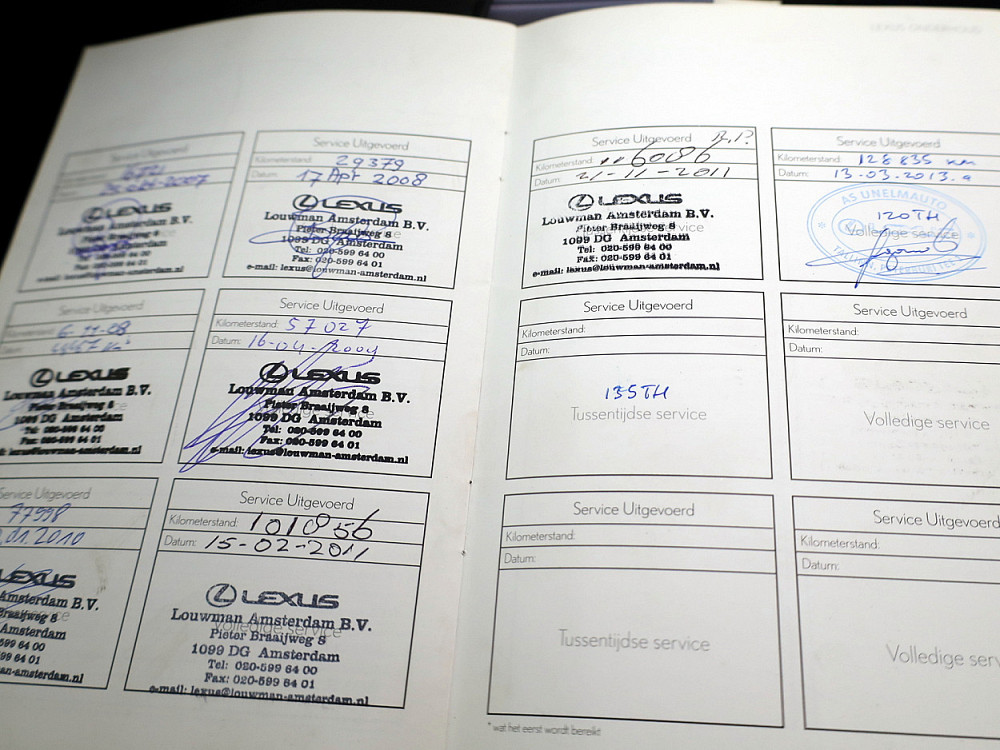 LEXUS ONDERHOUD
Service Uitgevoerd
Kilometerstand:
Datum:
LEXUS
Louwman Amsterdam B.V.
Pieter Braaijweg 8
1099 DG Amsterdam
Tel: 020-599 64 00
Fax: 020-599 64 01
Service Uitgevoerd
Kilometerstand: 29379
Datum: 17 Apr 2008
LEXUS
Louwman Amsterdam B.V.
Pieter Braaijweg 8
1099 DG Amsterdam
Tel: 020-599 64 00
Fax: 020-599 64 01
e-mail: lexus@louwman-amsterdam.nl
Service Uitgevoerd
6-11-08
LEXUS
Louwman Amsterdam B.V.
Pieter Braaijweg 8
1099 DG Amsterdam
Tel: 020-599 64 00
Fax: 020-599 64 01
lexus@louwman-amsterdam.nl
Service Uitgevoerd
Kilometerstand: 57027
Datum: 16-04-2009
LEXUS
Louwman Amsterdam B.V.
Pieter Braaijweg 8
1099 DG Amsterdam
Tel: 020-599 64 00
Fax: 020-599 64 01
e-mail: lexus@louwman-amsterdam.nl
Service Uitgevoerd
77998
01 2010
LEXUS
Amsterdam B.V.
Braaijweg 8
Amsterdam
599 64 00
599 64 01
an-amsterdam.nl
Service Uitgevoerd
Kilometerstand: 101856
Datum: 15-02-2011
LEXUS
Louwman Amsterdam B.V.
Volledige service
Pieter Braaijweg 8
1099 DG Amsterdam
Tel: 020-599 64 00
Fax: 020-599 64 01
e-mail: lexus@louwman-amsterdam.nl
Service Uitgevoerd
Kilometerstand: 6086
Datum: 21-11-2011
LEXUS
Louwman Amsterdam B.V.
Pieter Braaijweg 8
1099 DG Amsterdam
Tel: 020-599 64 00
Fax: 020-599 64 01
e-mail: lexus@louwman-amsterdam.nl
Service Uitgevoerd
Kilometerstand: 128 835 km
Datum: 13-03-2013.a
AS UNELMAUTO
120TH
Volledige service
Service Uitgevoerd
Kilometerstand:
Datum:
135TH
Tussentijdse service
Service Uitgevoerd
Kilometerstand:
Datum:
Volledige service
Service Uitgevoerd
Kilometerstand:
Datum:
Tussentijdse service
Service Uitgevoerd
Kilometerstand:
Datum:
Volledige serv
* wat het eerst wordt bereikt